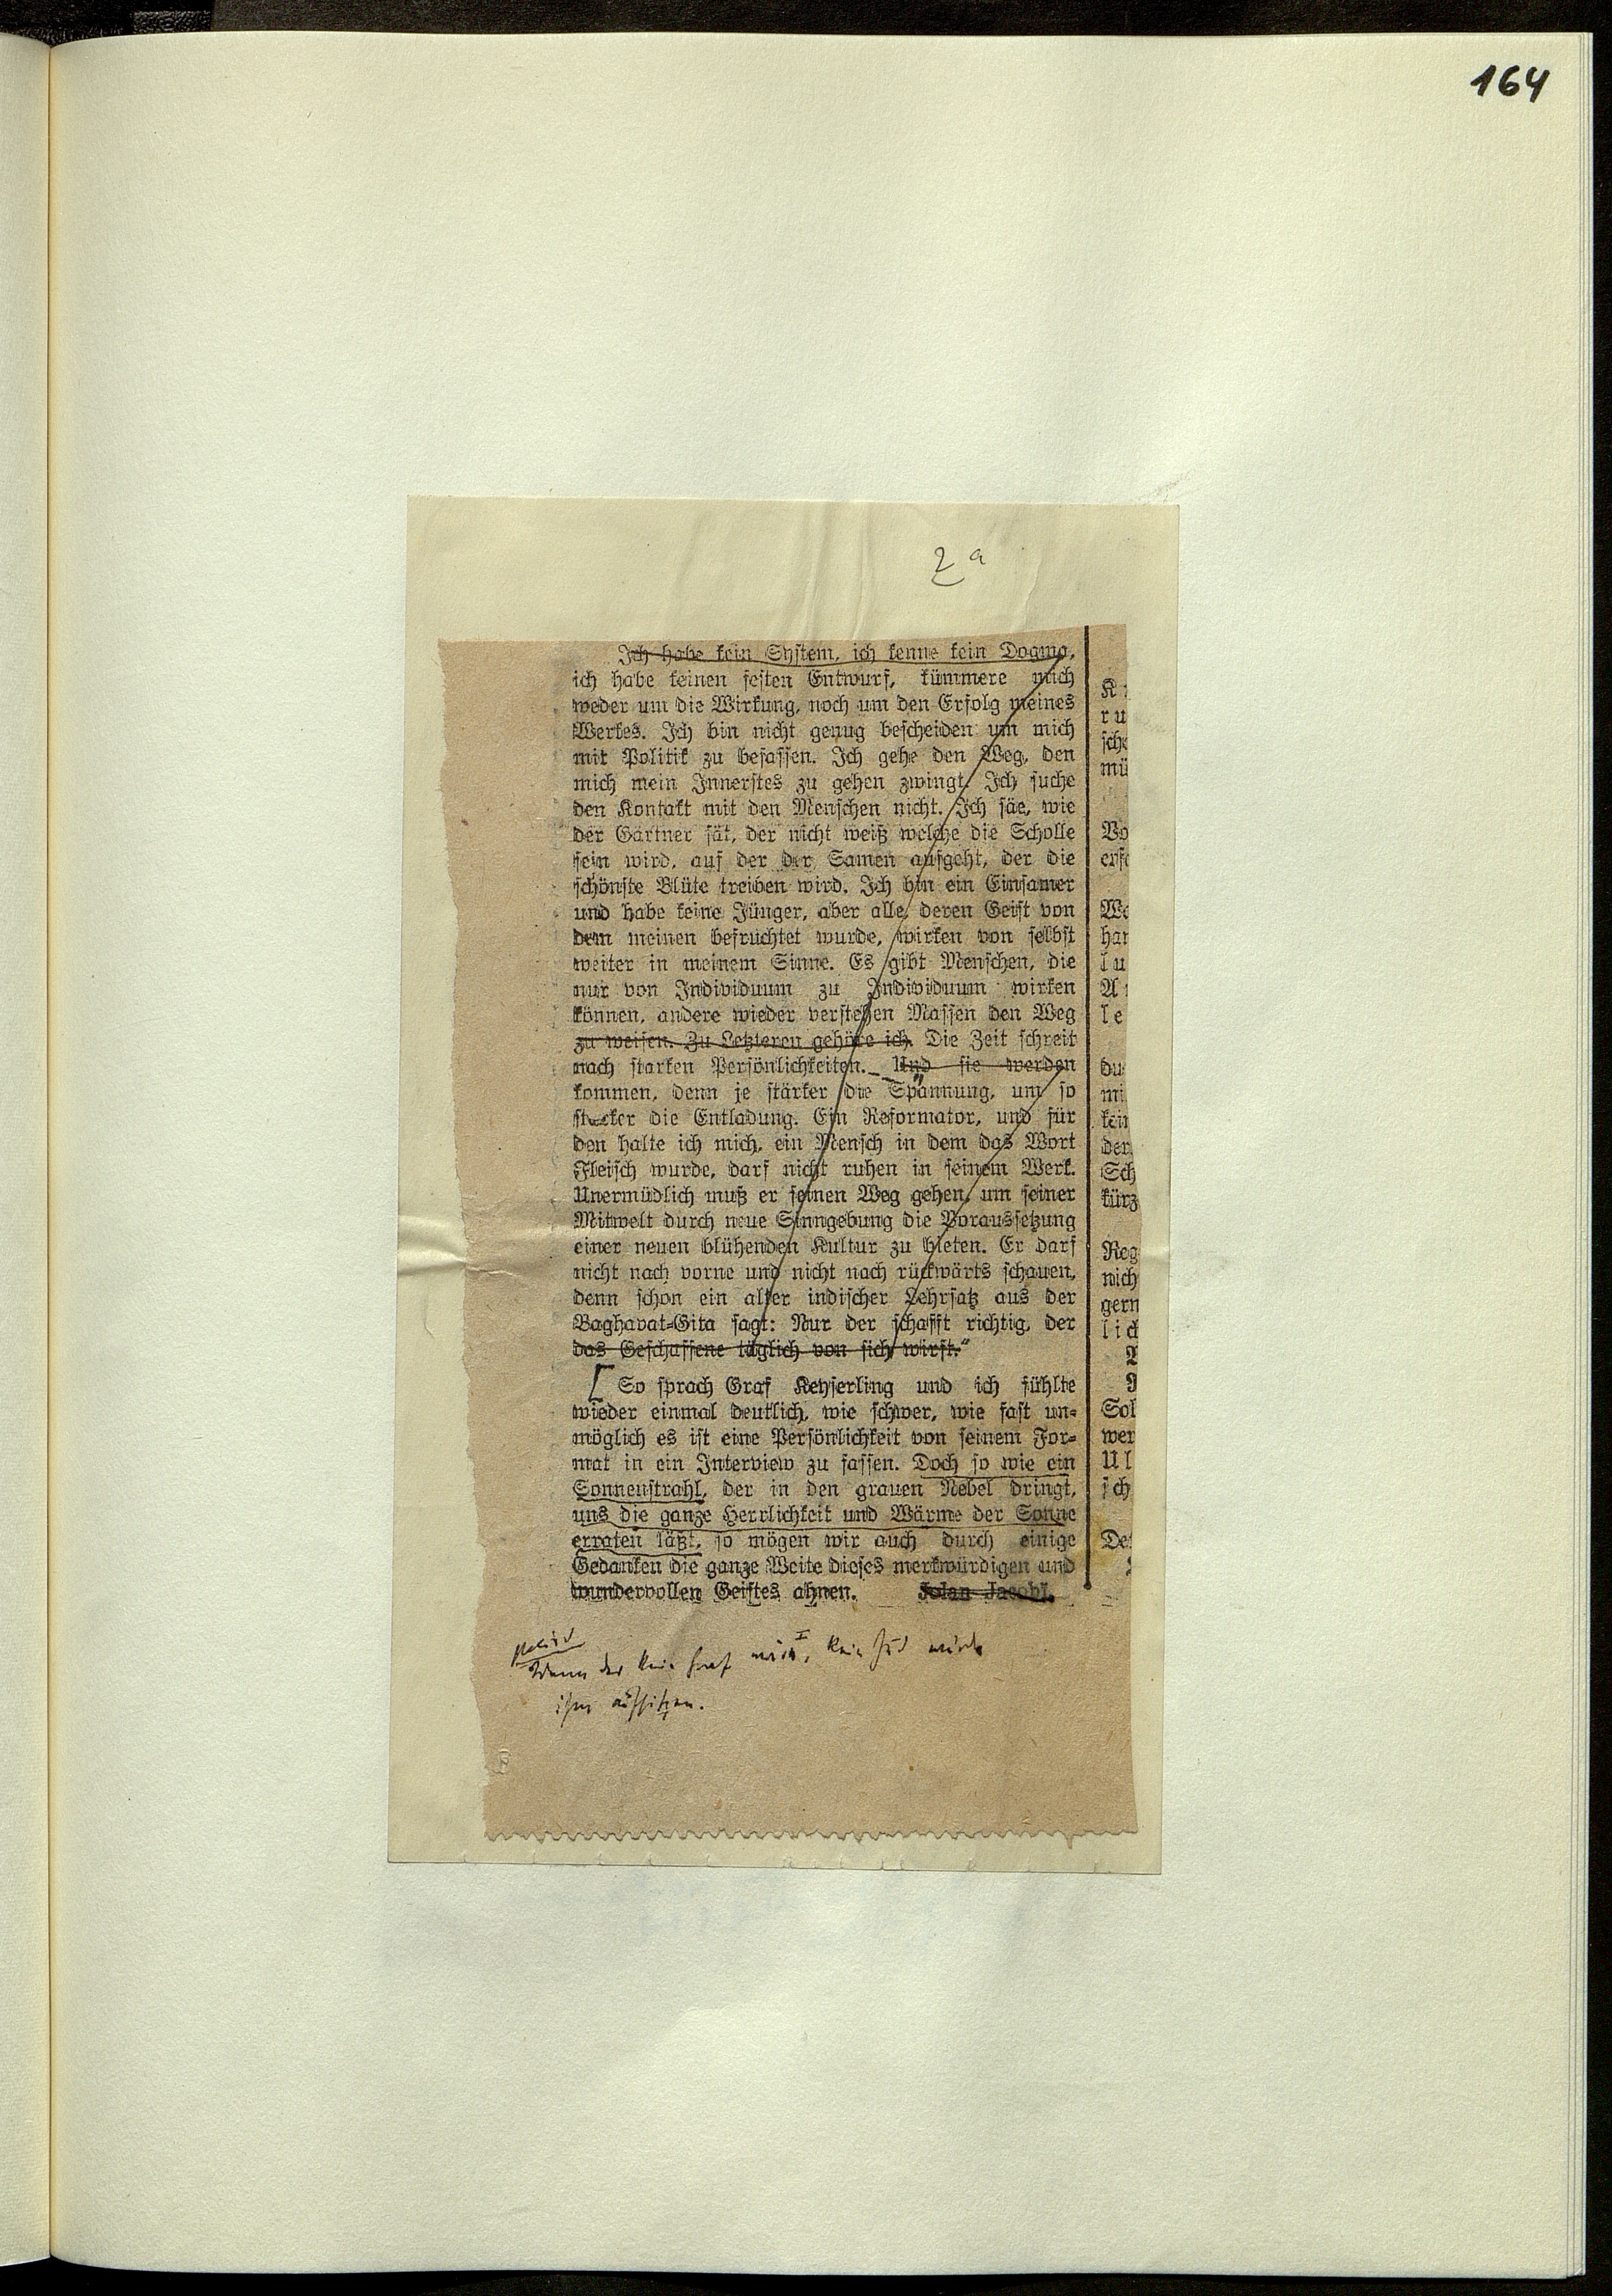 164
2a
Ich habe kein System, ich kenne kein Dogma,
ich habe keinen festen Entwurf, kümmere mich
weder um die Wirkung, noch um den Erfolg meines
Werkes. Ich bin nicht genug bescheiden um mich
mit Politik zu befassen. Ich gehe den Weg, den
mich mein Innerstes zu gehen zwingt. Ich suche
den Kontakt mit den Menschen nicht. Ich säe, wie
der Gärtner sät, der nicht weiß welche die Scholle
sein wird, auf der der Samen aufgeht, der die
schönste Blüte treiben wird. Ich bin ein Einsamer
und habe keine Jünger, aber alle, deren Geist von
dem meinen befruchtet wurde, wirken von selbst
weiter in meinem Sinne. Es gibt Menschen, die
nur von Individuum zu Individuum wirken
können, andere wieder verstehen Massen den Weg
zu weisen. Zu Letzteren gehöre ich. Die Zeit schreit
nach starken Persönlichkeiten. Und sie werden
kommen, denn je stärker die Spannung, um so
stärker die Entladung. Ein Reformator, und für
den halte ich mich, ein Mensch in dem das Wort
Fleisch wurde, darf nicht ruhen in seinem Werk.
Unermüdlich muß er seinen Weg gehen, um seiner
Mitwelt durch neue Sinngebung die Voraussetzung
einer neuen blühenden Kultur zu bieten. Er darf
nicht nach vorne und nicht nach rückwärts schauen,
denn schon ein alter indischer Lehrsatz aus der
Baghavat-Gita sagt: Nur der schafft richtig, der
das Geschaffene täglich von sich wirft.“
So sprach Graf Keyserling und ich fühlte
wieder einmal deutlich, wie schwer, wie fast un-
möglich es ist eine Persönlichkeit von seinem For-
mat in ein Interview zu fassen. Doch so wie ein
Sonnenstrahl, der in den grauen Nebel dringt,
uns die ganze Herrlichkeit und Wärme der Sonne
erraten läßt, so mögen wir auch durch einige
Gedanken die ganze Weite dieses merkwürdigen und
wundervollen Geistes ahnen. Jolan Jacobi.
Wenn der kein Graf wär, kein Jud würde
ihm aufsitzen.
ru
sche
mü
Vo
erfo
We
har
lu
le
du
mi
kein
der
Sch
kürz
Reg
nich
gern
lich
Sol
wer
Ul
sch
De